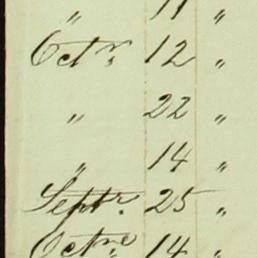 " 11 "
Octr. 12 "
" 22 "
" 14 "
Septr. 25 "
Octre 14 "